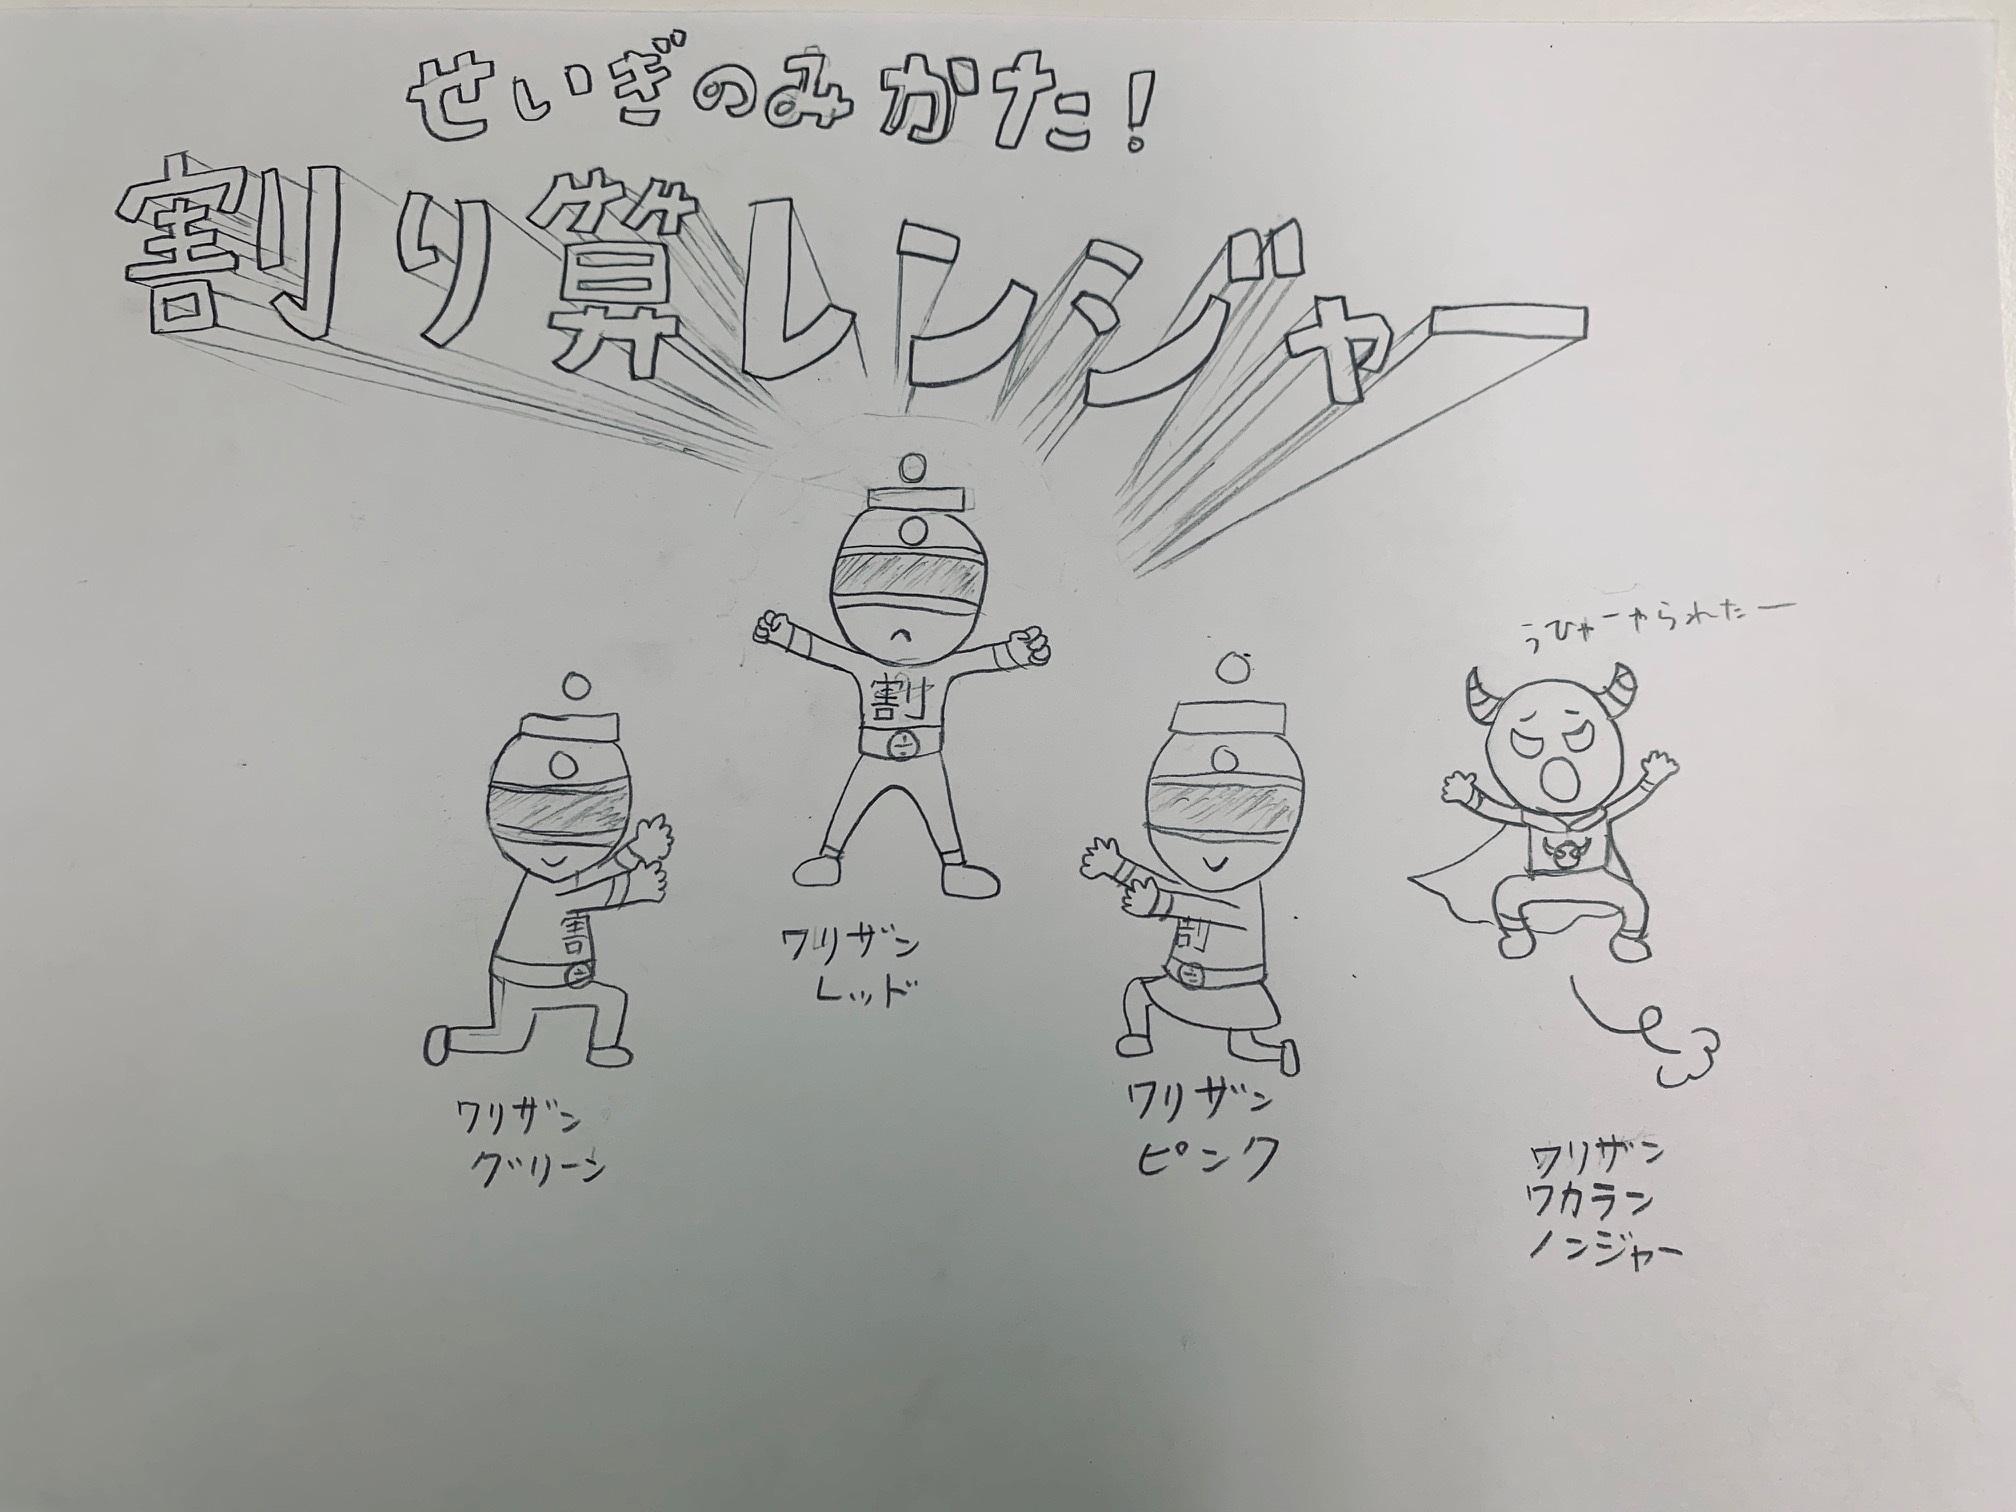 せいぎのみかた!
割り算レンジャー
うひゃーやられたー
割
割
割
ワリザン
レッド
ワリザン
グリーン
ワリザン
ピンク
ワリザン
ワカラン
ノンジャー